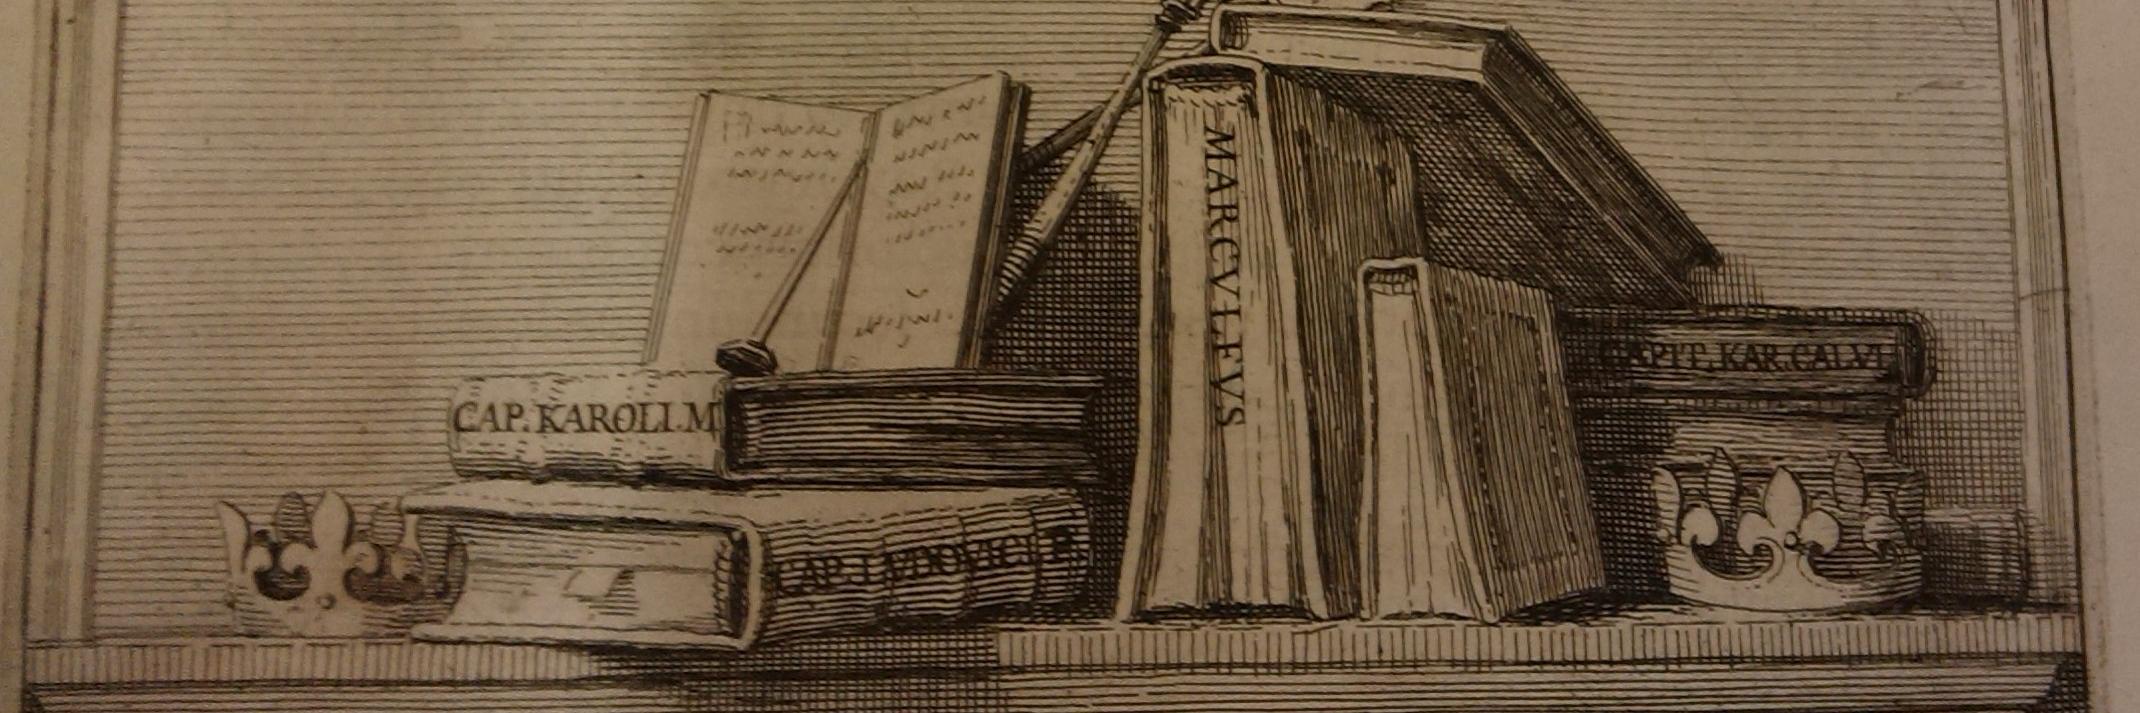 MARCVLFVS
CAPIT. KAR. CALVI
CAP. KAROLI. M
CAP. LVDOVICI P.